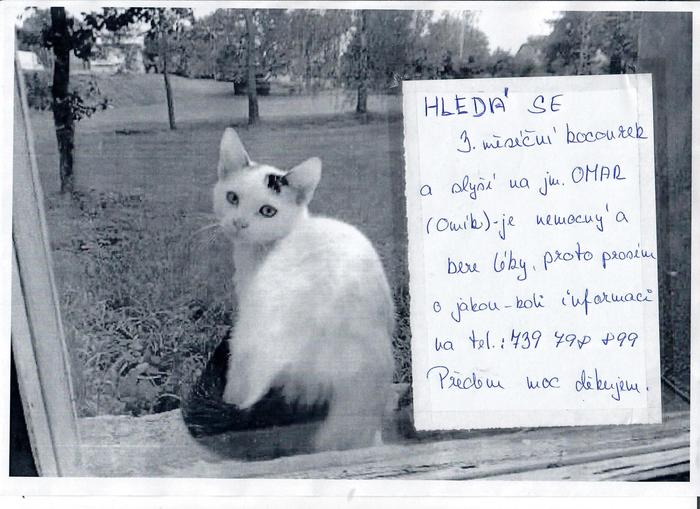 HLEDÁ SE
3. měsíční kocourek
a slyší na jm. OMAR
(Omík)-je nemocný a
bere léky, proto prosím
o jakou-koli informaci
na tel.: 739 798 899
Předem moc děkujem.